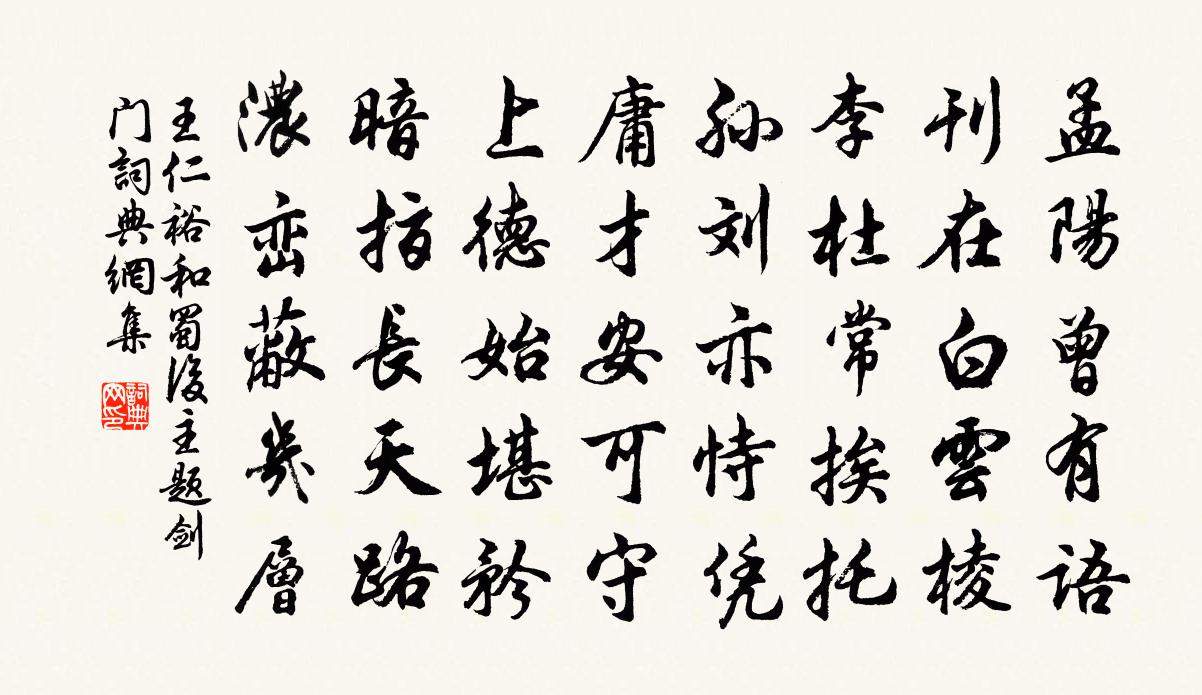 孟陽曾有語
刊在白雲棱
李杜常挨托
孙刘亦恃凭
庸才安可守
上德始堪矜
暗指長天路
濃峦蔽幾層
王仁裕和蜀後主题剑
门詞典網集
詞典
网印